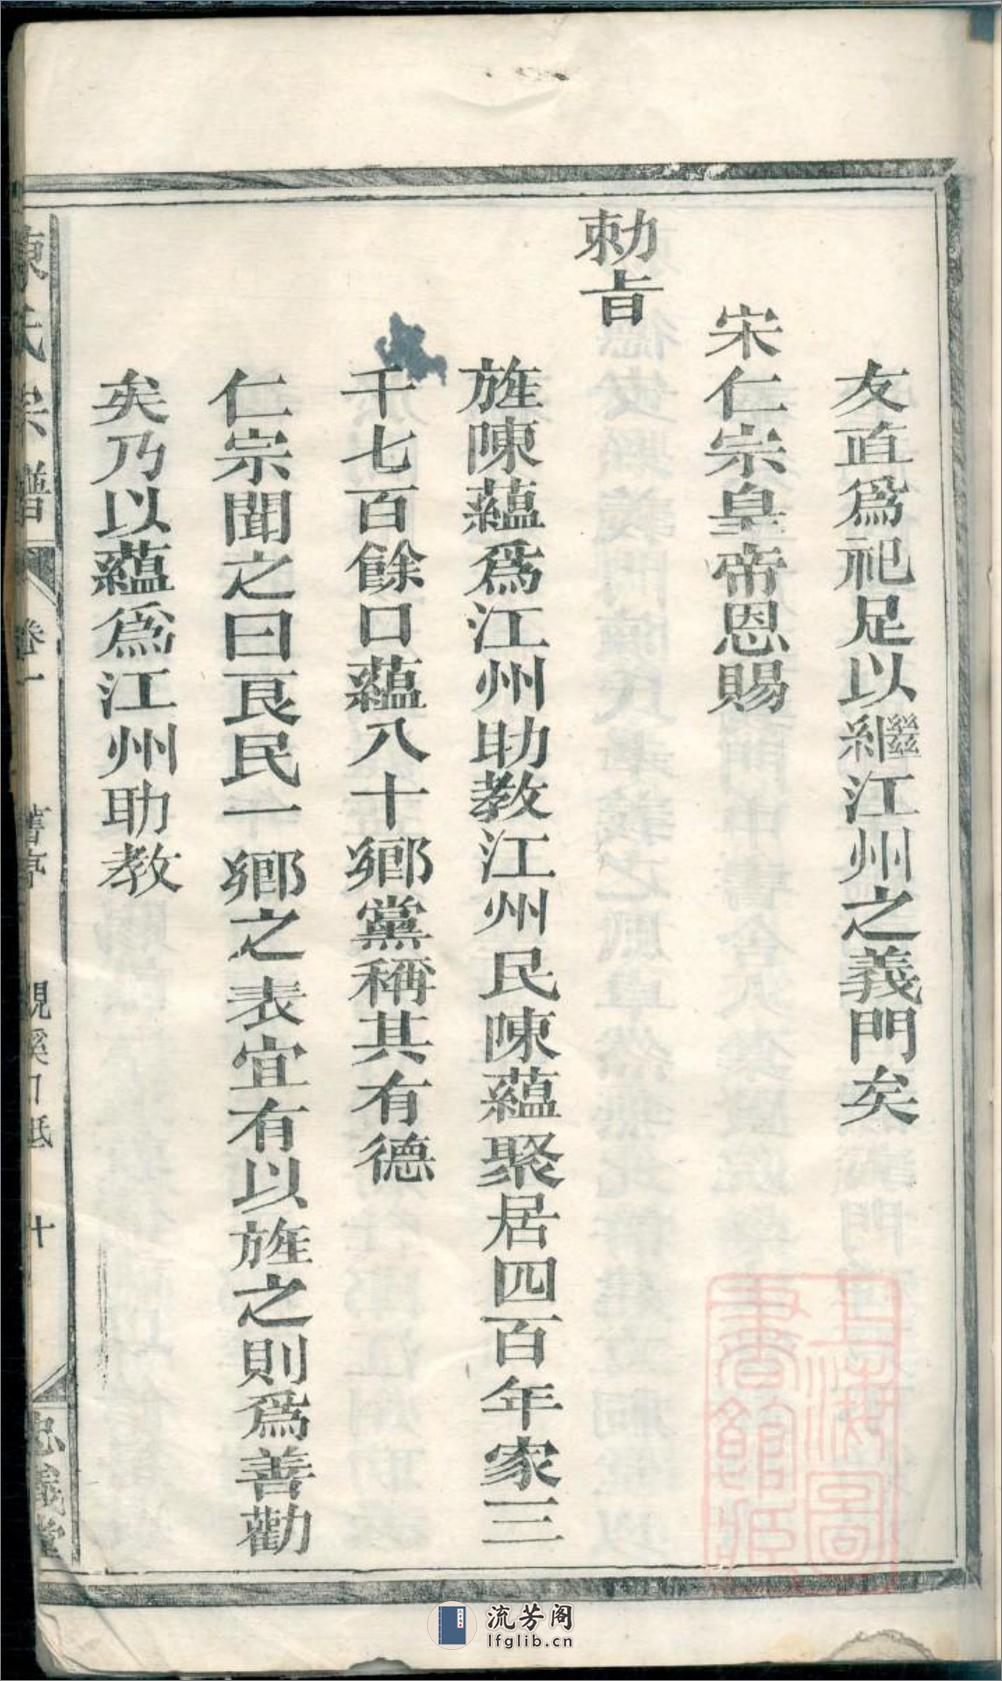 友直爲祀足以繼江州之義門矣
宋仁宗皇帝恩賜
勅旨
旌陳蘊爲江州助教江州民陳蘊聚居四百年家三
千七百餘口蘊八十鄉黨稱其有德
仁宗聞之曰良民一鄉之表宜有以旌之則爲善勸
矣乃以蘊爲江州助教
陳氏宗譜
卷一
舊序
十
忠義堂
上海圖書館藏
流芳阁
lfglib.cn